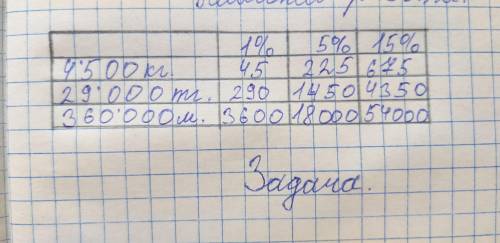 1% 5% 15%
4'500кг. 45 225 675
29'000тг. 290 1450 4350
360'000м. 3600 18000 54000
Задача.